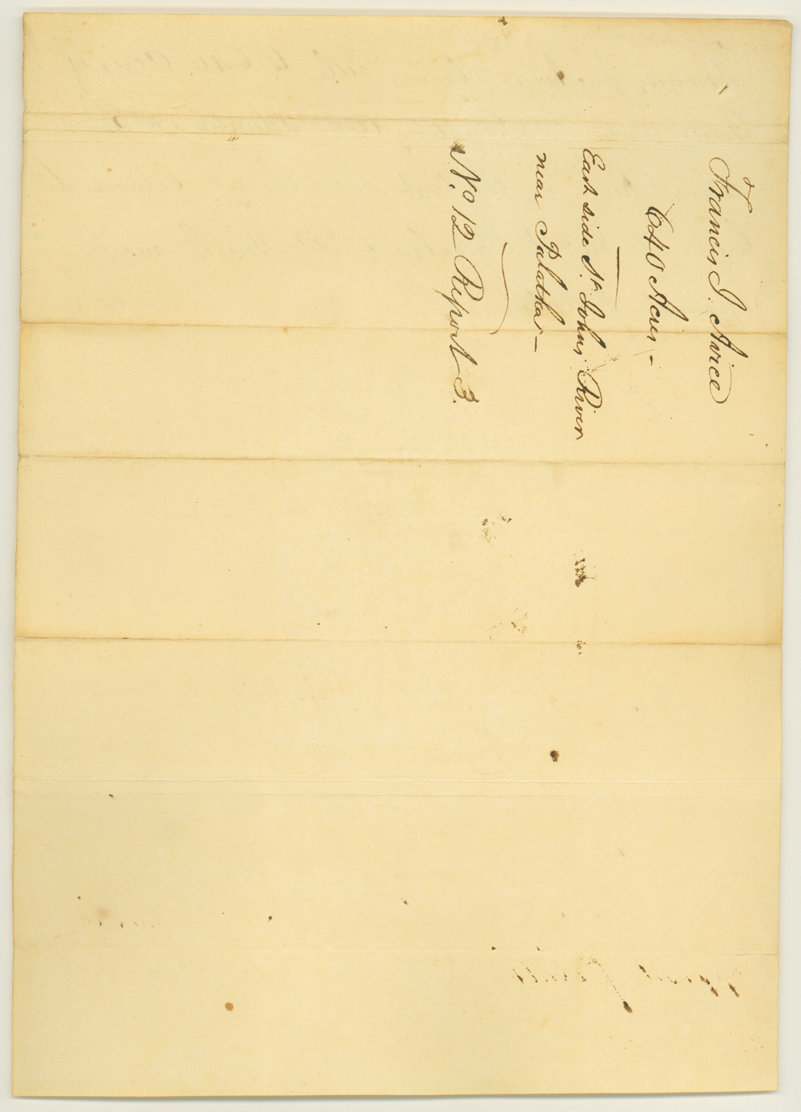 Francis J. Avice
640 Acres –
East side St. Johns River
near Palatkas –
No. 12 Report 3.